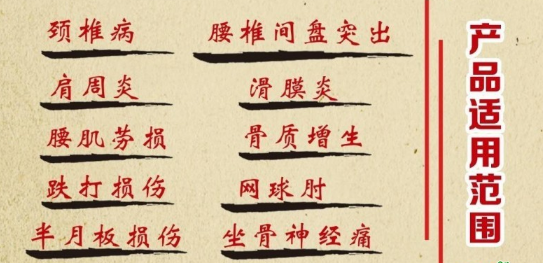 颈椎病
腰椎间盘突出
肩周炎
滑膜炎
腰肌劳损
骨质增生
跌打损伤
网球肘
半月板损伤
坐骨神经痛
产品适用范围